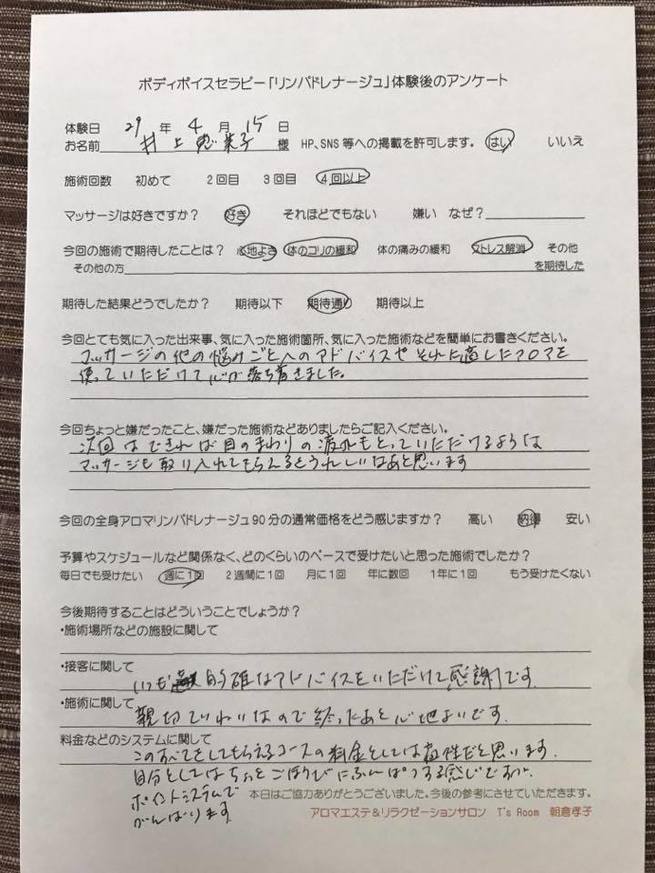 ボディボイスセラピー「リンパドレナージュ」体験後のアンケート
体験日 29 年 4 月 15 日
お名前 村上 恵美子 様 HP、SNS 等への掲載を許可します。 はい いいえ
施術回数 初めて 2回目 3回目 4回以上
マッサージは好きですか? 好き それほどでもない 嫌い なぜ?
今回の施術で期待したことは? 心地よさ 体のコリの緩和 体の痛みの緩和 ストレス解消 その他
その他の方 を期待した
期待した結果どうでしたか? 期待以下 期待通り 期待以上
今回とても気に入った出来事、気に入った施術箇所、気に入った施術などを簡単にお書きください。
マッサージの他の悩みごとへのアドバイスや それに適したアロマを
使っていただけて心が落ち着きました。
今回ちょっと嫌だったこと、嫌だった施術などありましたらご記入ください。
次回は できれば 目のまわりの疲れもとっていただけるような
マッサージも取り入れてもらえるとうれしいなあと思います
今回の全身アロマリンパドレナージュ90分の通常価格をどう感じますか? 高い 納得 安い
予算やスケジュールなど関係なく、どのくらいのペースで受けたいと思った施術でしたか?
毎日でも受けたい 週に1回 2週間に1回 月に1回 年に数回 1年に1回 もう受けたくない
今後期待することはどういうことでしょうか?
・施術場所などの施設に関して
・接客に関して
いつも 的確なアドバイスをいただけて感謝です。
・施術に関して
親切ていねいなので終ったあと心地よいです。
料金などのシステムに関して
このすべてをしてもらえるコースの料金としては 妥性だと思います。
自分としてはちょっとごほうびにふんぱつする感じですが、
ポイントシステムで
がんばります
本日はご協力ありがとうございました。今後の参考にさせていただきます。
アロマエステ&リラクゼーションサロン T's Room 朝倉孝子